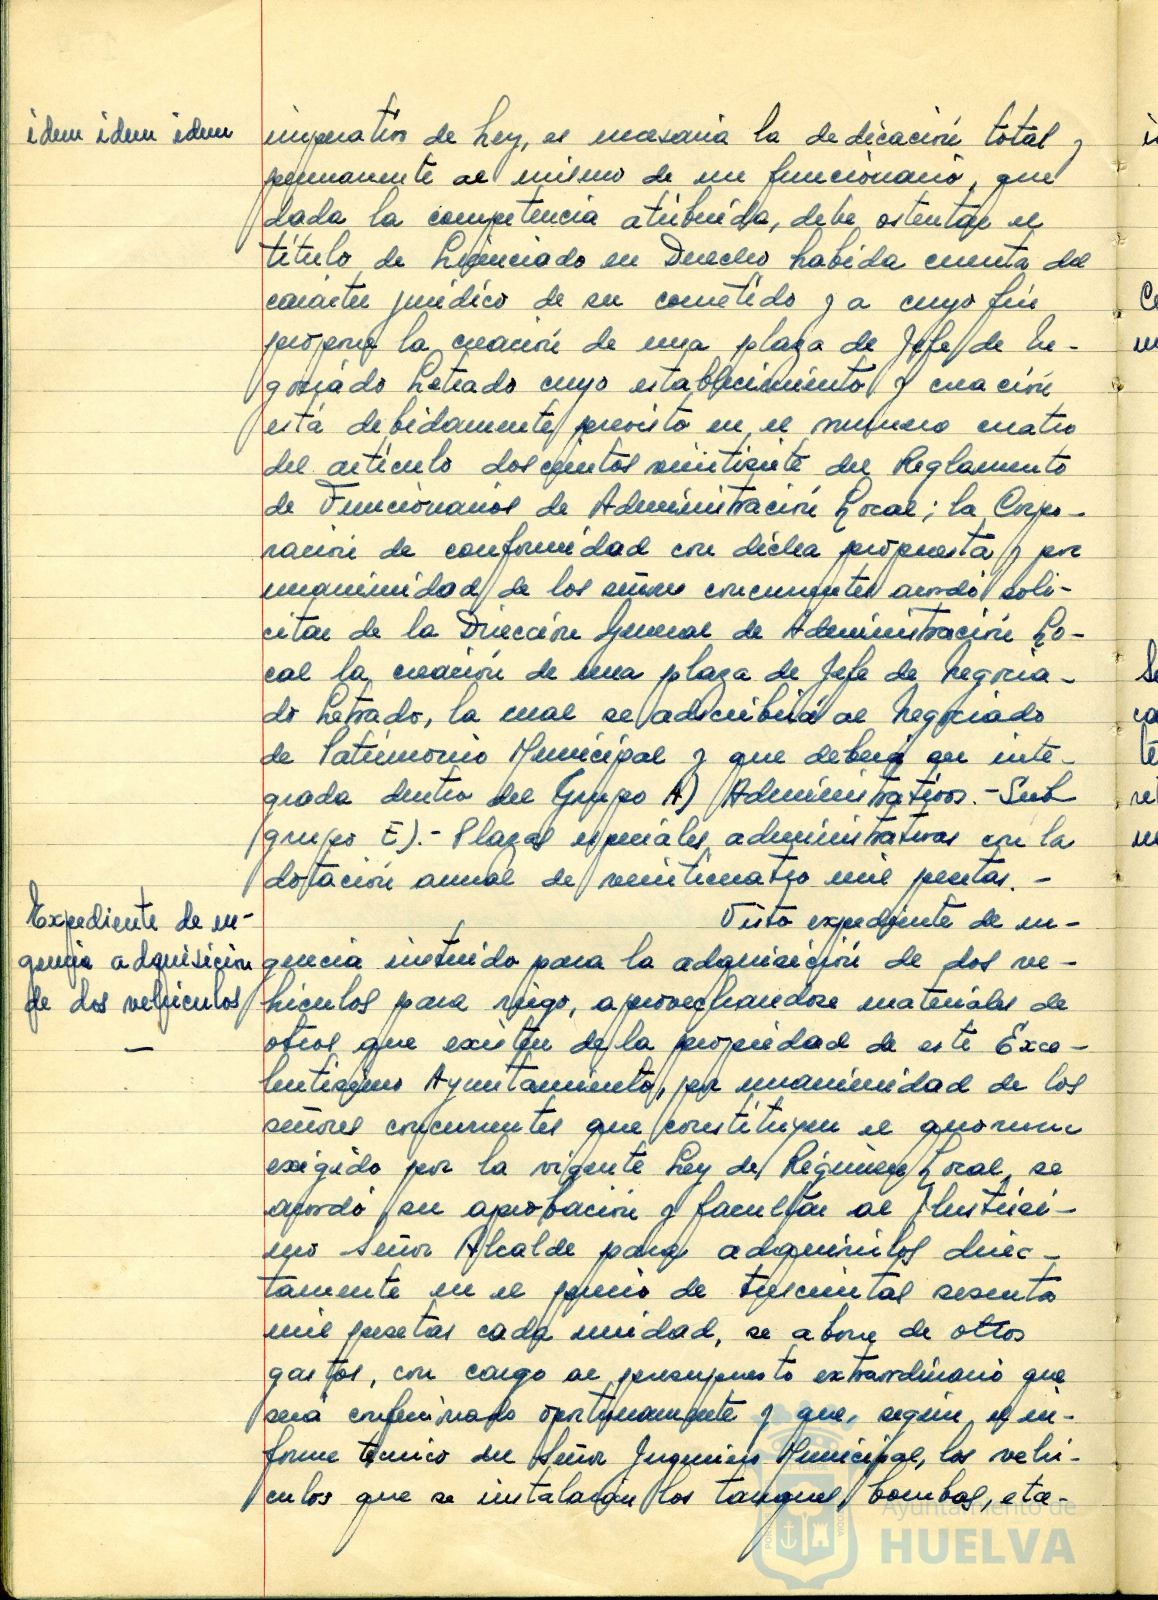 idem idem idem
imperativo de Ley, es necesaria la dedicación total y
permanente al mismo de un funcionario, que
dada la competencia atribuida, debe ostentar el
título de Licenciado en Derecho habida cuenta del
carácter jurídico de su cometido y a cuyo fin
propone la creación de una plaza de Jefe de Ne-
gociado Letrado cuyo establecimiento y creación
está debidamente previsto en el número cuatro
del artículo doscientos veintisiete del Reglamento
de Funcionarios de Administración Local; la Corpo-
ración de conformidad con dicha propuesta y por
unanimidad de los señores concurrentes acordó soli-
citar de la Dirección General de Administración Lo-
cal la creación de una plaza de Jefe de Negocia-
do Letrado, la cual se adscribirá al Negociado
de Patrimonio Municipal y que deberá ser inte-
grada dentro del Grupo A) Administrativos.- Sub
grupo E).- Plazas especiales administrativas con la
dotación anual de veinticuatro mil pesetas. -
Expediente de ur-
gencia adquisición
de dos vehículos
Visto expediente de ur-
gencia instruido para la adquisición de dos ve-
hículos para riego, aprovechandose materiales de
otros que existen de la propiedad de este Exce-
lentísimo Ayuntamiento, por unanimidad de los
señores concurrentes que constituyen el quorum
exigido por la vigente Ley de Régimen Local, se
acordó su aprobación y facultar al Ilustrísi-
mo Señor Alcalde para adquirirlos direc-
tamente en el precio de trescientas sesenta
mil pesetas cada unidad, se abone de otros
gastos, con cargo al presupuesto extraordinario que
será confeccionado oportunamente y que, según el in-
forme técnico del Señor Ingeniero Municipal, los vehí-
culos que se instalarán los tanques, bombas, etc-
Ayuntamiento de
HUELVA